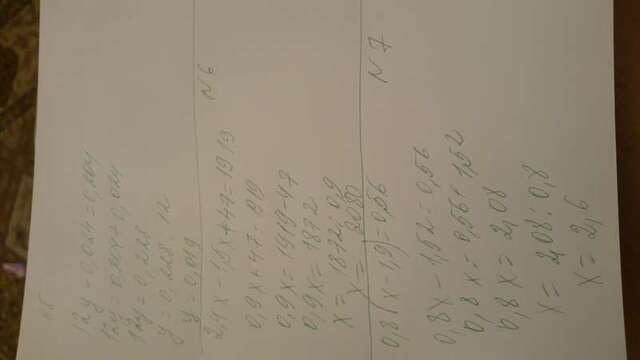 №5
12y - 0,024 = 0,204
12y = 0,204 + 0,024
12y = 0,228
y = 0,228 : 12
y = 0,019
№6
2,4x - 1,5x + 47 = 1919
0,9x + 47 = 1919
0,9x = 1919 - 47
0,9x = 1872
x = 1872 : 0,9
x = 2080
№7
0,8(x - 1,9) = 0,56
0,8x - 1,52 = 0,56
0,8x = 0,56 + 1,52
0,8x = 2,08
x = 2,08 : 0,8
x = 2,6